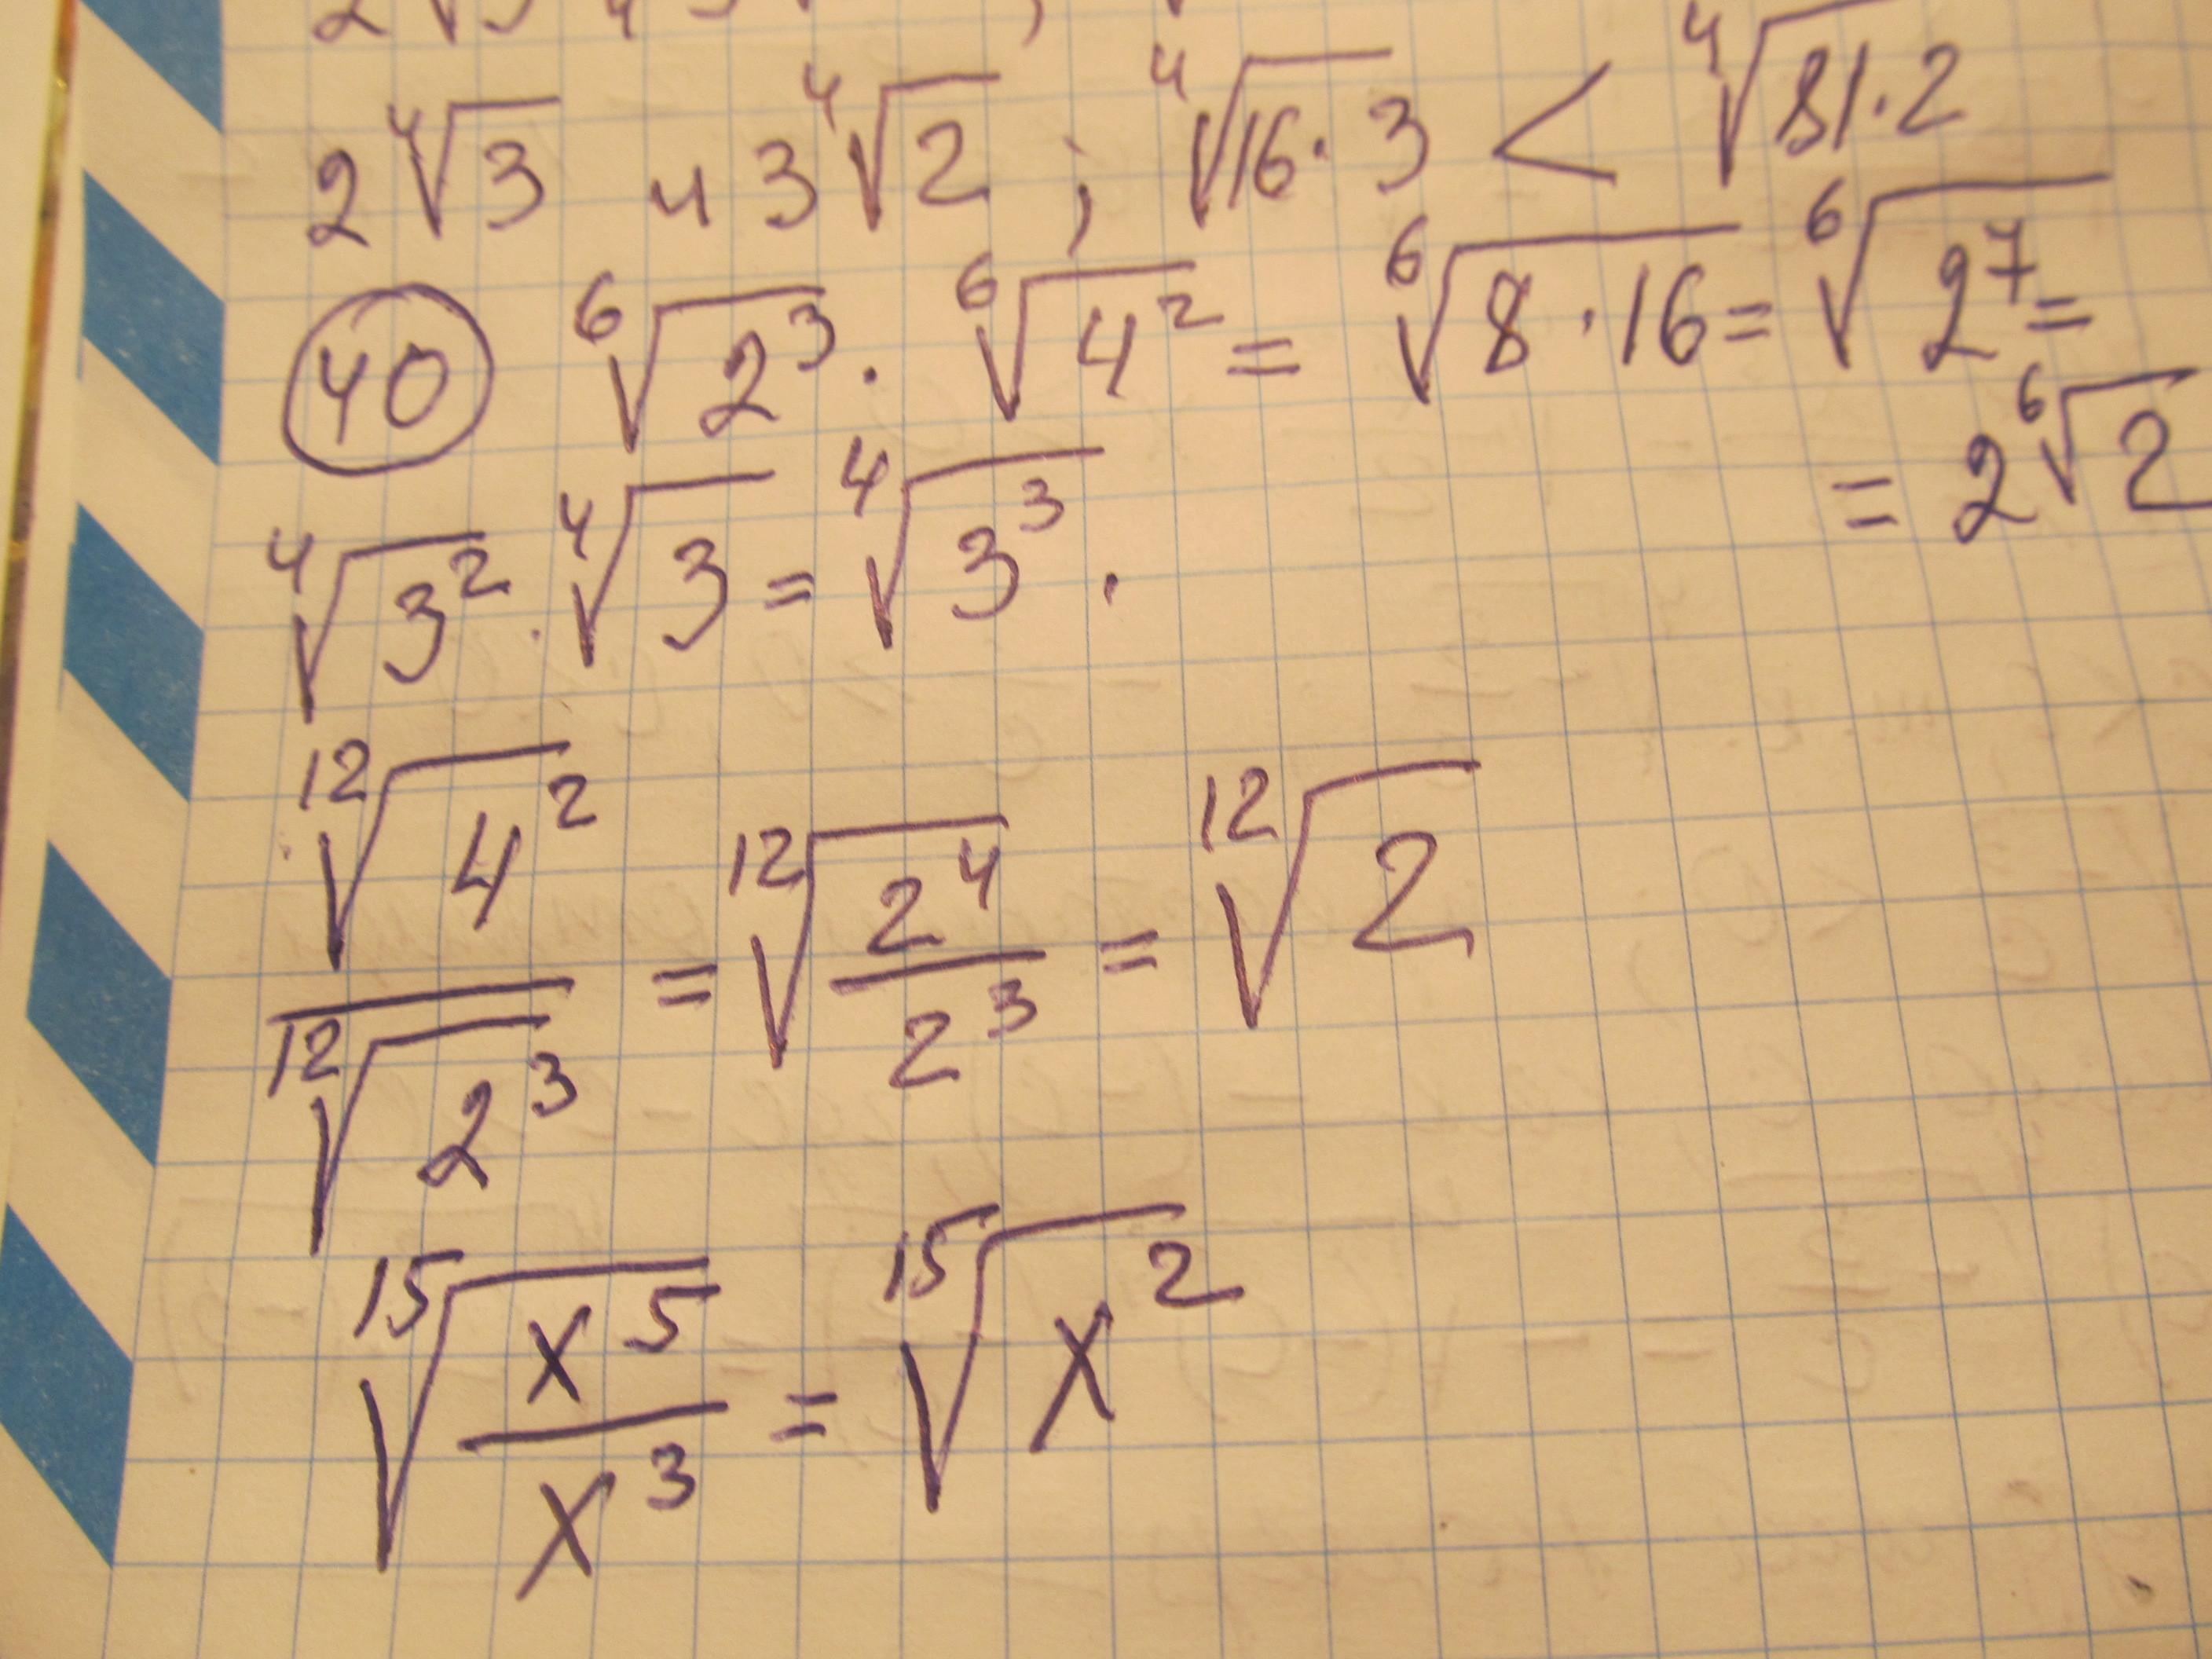 2∜3 и 3∜2 ; ∜(16·3) < ∜(81·2)
40 ⁶√(2³) · ⁶√(4²) = ⁶√(8·16) = ⁶√(2⁷) =
= 2 ⁶√2
∜(3²) · ∜3 = ∜(3³) .
¹²√(4²) / ¹²√(2³) = ¹²√(2⁴/2³) = ¹²√2
¹⁵√(x⁵/x³) = ¹⁵√(x²)